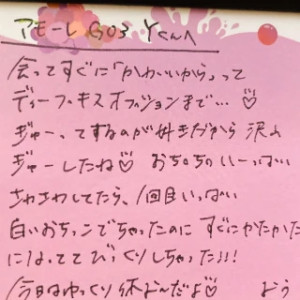 アモーレ G03 Yくんへ
会ってすぐに「かわいいから」って
ディープキスオプションまで…♡
ぎゅーってするのが好きだから 沢山
ぎゅーしたね♡ おちちいーっぱい
さわさわしてたら、1回目いっぱい
白いおちっこでちゃったのに すぐにかたいかた
になっててびっくりしちゃった!!!
今日はゆっくり休んだよ♡